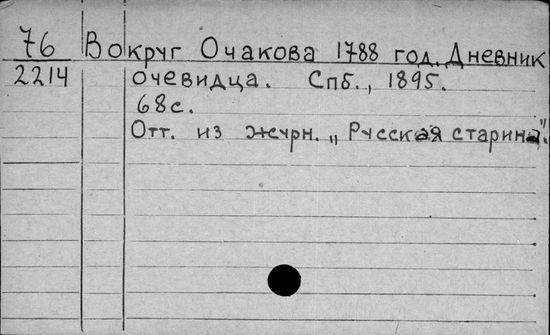 76 Вокруг Очакова 1788 год. Дневник
2214 очевидца. Спб., 1895.
68с.
Отт. из журн. „Русская старина".